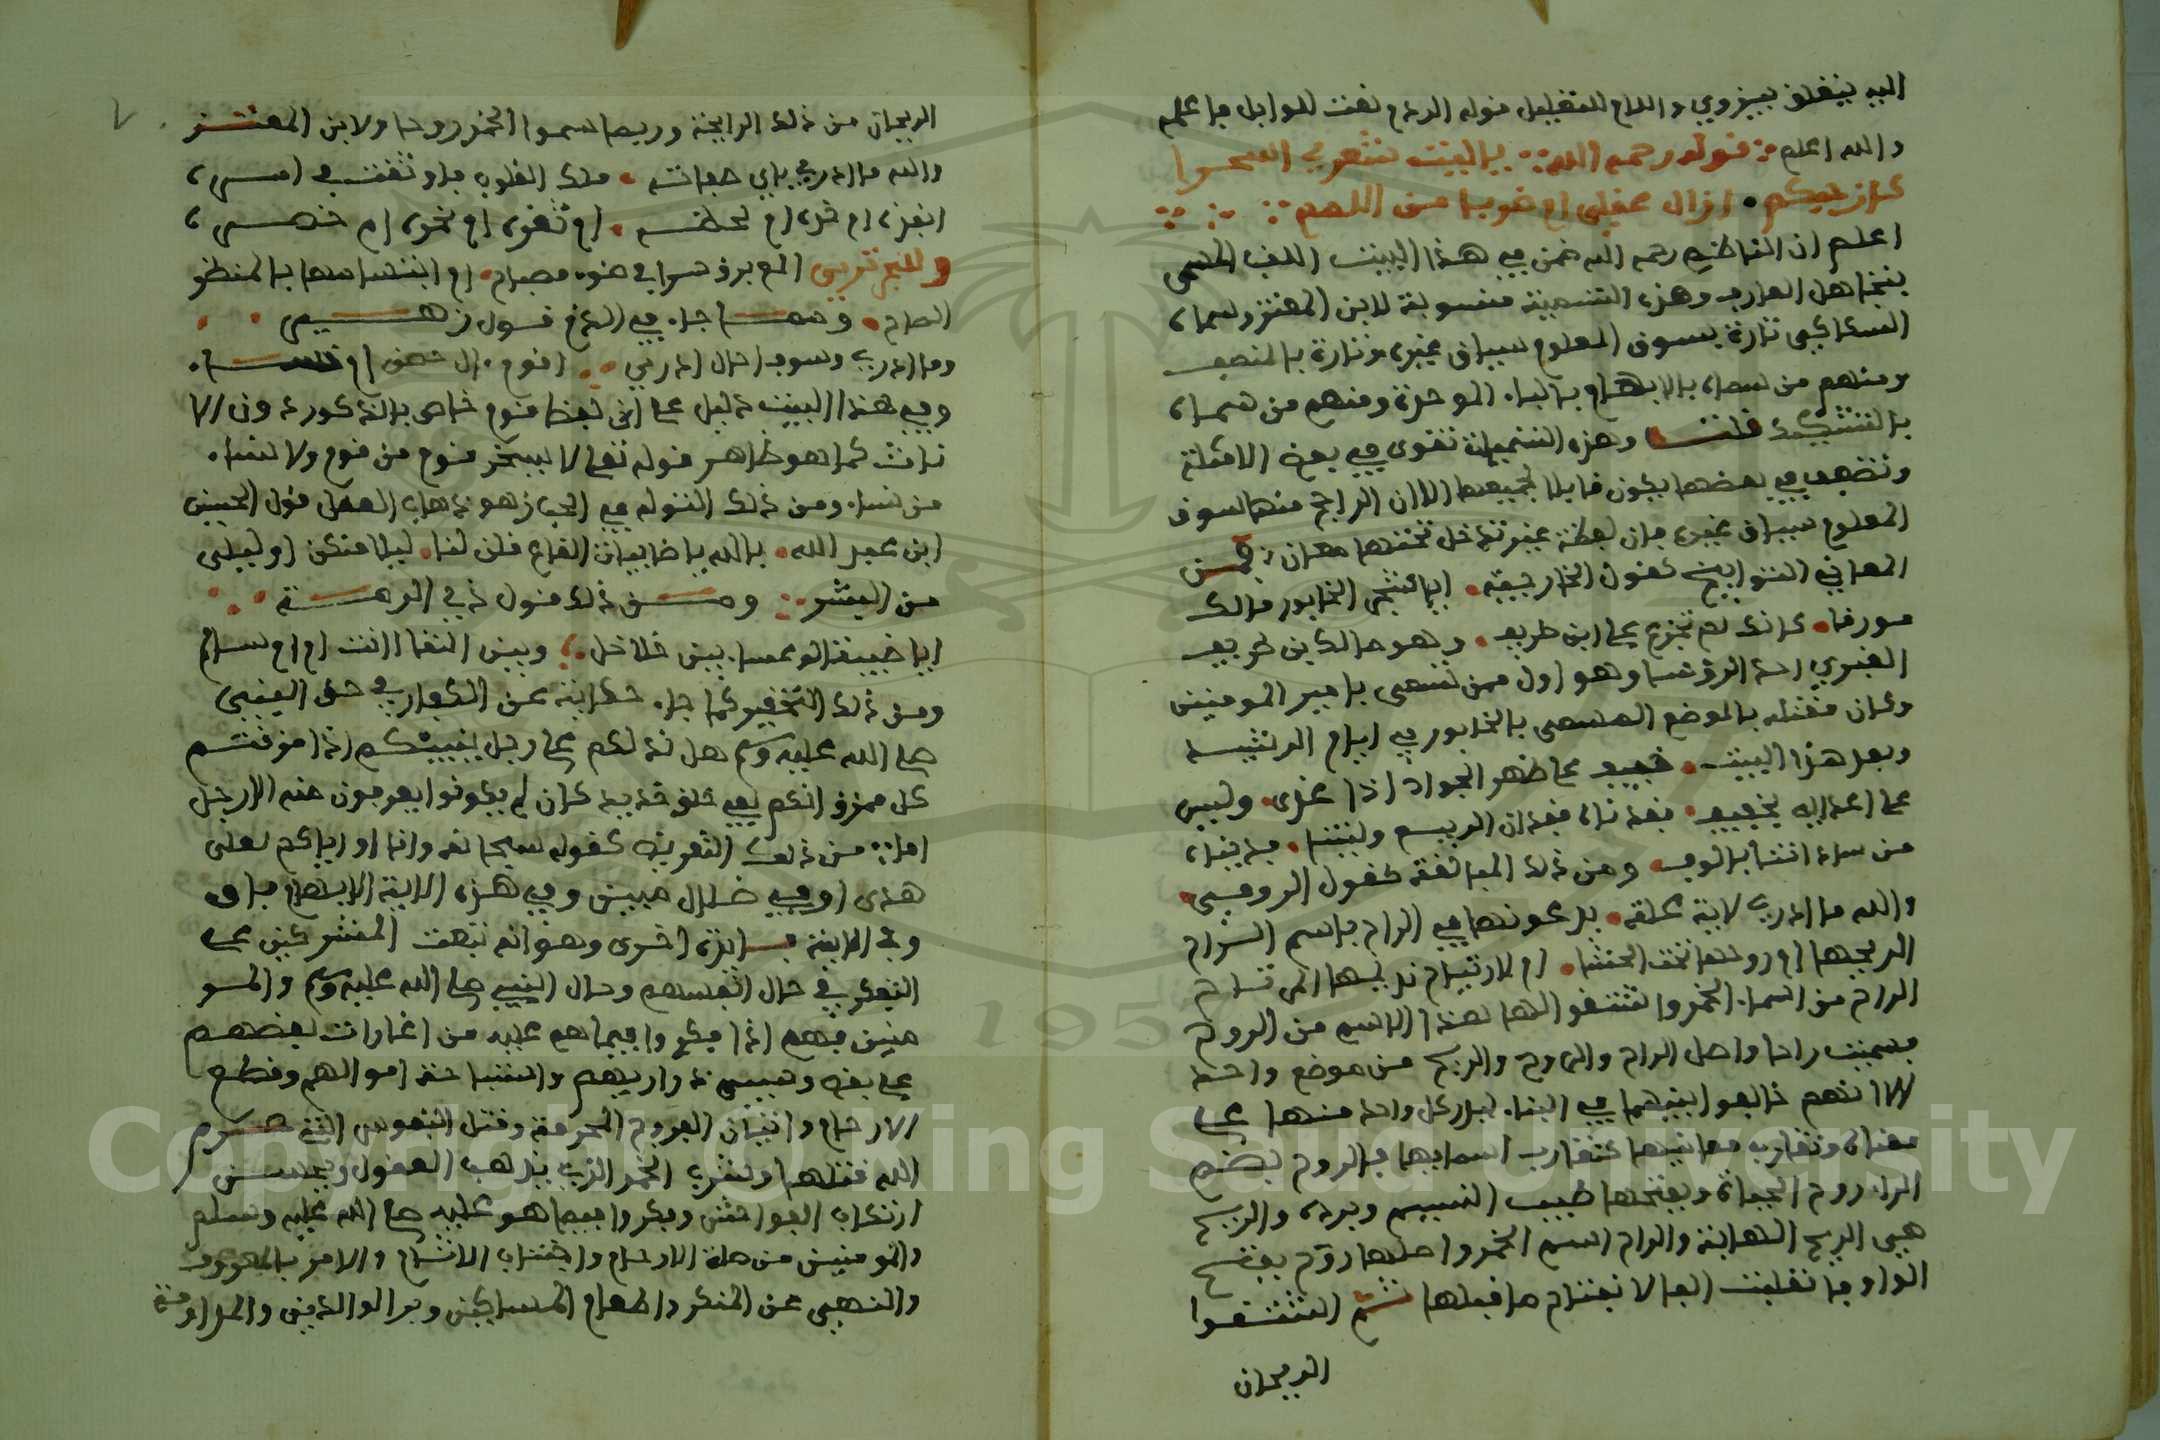 اليه ينفلق بيزوي واللام للتعليل قوله الردم نعت للوابل فاعلم
والله اعلم قوله رحمه الله يا لبيت شعري اسحرا
كان حبكم ازال عقلي ام ضربا من اللمم
اعلم ان الناظم رحمه الله ضمن في هذا البيت اللقب المسمى
بتجاهل العارف وهذه التسمية منسوبة لابن المعتز وسماه
السكاكي تارة بسوق المعلوم سياق غيره وتارة بالتعسف
ومنهم من سماه بالابهام بالباء الموحدة ومنهم من سماه
بالتشكيك قلت وهذه التسميات تقوى في بعض الامثلة
وتضعف في بعضها يكون قابلا لجميعها الا ان الراجح منها سوق
المعلوم سياق غيره فان لفظة غير تدخل تحتها معان فمن
المعاني التوابيخ كقول الخارجية ايا شجر الخابور مالك
مورقا كانك لم تجزع على ابن طريف وهو مالك بن طريف
احد الرؤسا وهو اول من تسمى بامير المومنين
وكان مقتله بالموضع المسمى بالخابور في ايام الرشيد
وبعد هذا البيت على ظهر الجواد اذا غدى وليس
على اعدايه بخفيف فقدناه فقدان الربيع وليتنا فديناه
من ساداتنا بالوف ومن ذلك المبالغة كقول الرومي
والله ما ادري لاية علة يدعونها في الراح باسم الراح
الريحها ام روحها تحت الحشا ام لارتياح نديمها المرتاح
الراح من اسماء الخمر واشتقوا لها هذا الاسم من الروح
فسميت راحا واصل الراح والروح والريح من موضع واحد
الا انهم خالفوا بينهما في البناء ليدل كل واحد منها على
معناه وتقارب معانيها كتقارب اسمايها فالروح بضم
الراء روح الحياة وبفتحها طيب النسيم وبرده والريح
هي الريح الهابة والراح اسم الخمر واصلها روح بفتح
الواو فانقلبت الفا لانفتاح ما قبلها ثم اشتقوا
الريحان
الريحان من ذلك الرايحة وربما سموا الخمر روحا ولابن المعتز
والله ما ادري باي صفاته ملك القلوب فاوثقت في اسره
ابوجهه ام شعره ام ثغره ام نحره ام خصره
وللبحتري المع برق سرا ام ضوء مصباح ام ابتسامتها بالمنظر
الضاح ومما جاء في الذم قول زهير
وما ادري وسوف اخال ادري اقوم ال حصن ام نساء
وفي هذا البيت دليل على ان لفظ قوم خاص بالذكور دون الا
ناث كما هو ظاهر قوله تعالى لا يسخر قوم من قوم ولا نساء
من نساء ومن ذلك التوله في الحب وهو ذهاب العقل قول الحسين
ابن عبد الله بالله يا ظبيات القاع قلن لنا ليلاي منكن ام ليلى
من البشر ومن ذلك قول ذي الرمة
ايا ظبية الوعساء بين جلاجل وبين النقا اانت ام ام سالم
ومن ذلك التحقير كما جاء حكاية عن الكفار في حق النبي
صلى الله عليه وسلم هل ندلكم على رجل ينبيكم اذا مزقتم
كل ممزق انكم لفي خلق جديد كان لم يكونوا يعرفون منه الا رجل
اما من ذلك التعريض كقوله سبحانه وانا او اياكم لعلى
هدى او في ضلال مبين وفي هذه الاية الابهام باق
وفي الاية فايدة اخرى وهو انه يبعث المشركين على
التفكر في حال انفسهم وحال النبي صلى الله عليه وسلم والمو
منين فهم اذا فكروا فيما هم عليه من اغارات بعضهم
على بعض وسبي ذراريهم واستباحة اموالهم وقطع
الارحام واتيان الفروج المحرمة وقتل النفوس التي حرم
الله قتلها وشرب الخمر الذي يذهب العقول ويحسن
ارتكاب الفواحش وفكروا فيما هو عليه صلى الله عليه وسلم
والمومنين من صلة الارحام واجتناب الاثام والامر بالمعروف
والنهي عن المنكر واطعام المساكين وبر الوالدين والمداومة
Copyright © King Saud University
1957